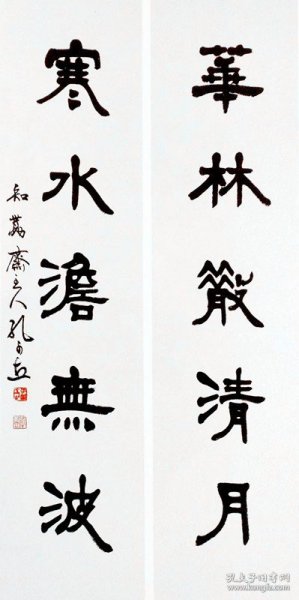 華林散清月
寒水澹無波
知齋主人孔可立
孔夫子旧书网